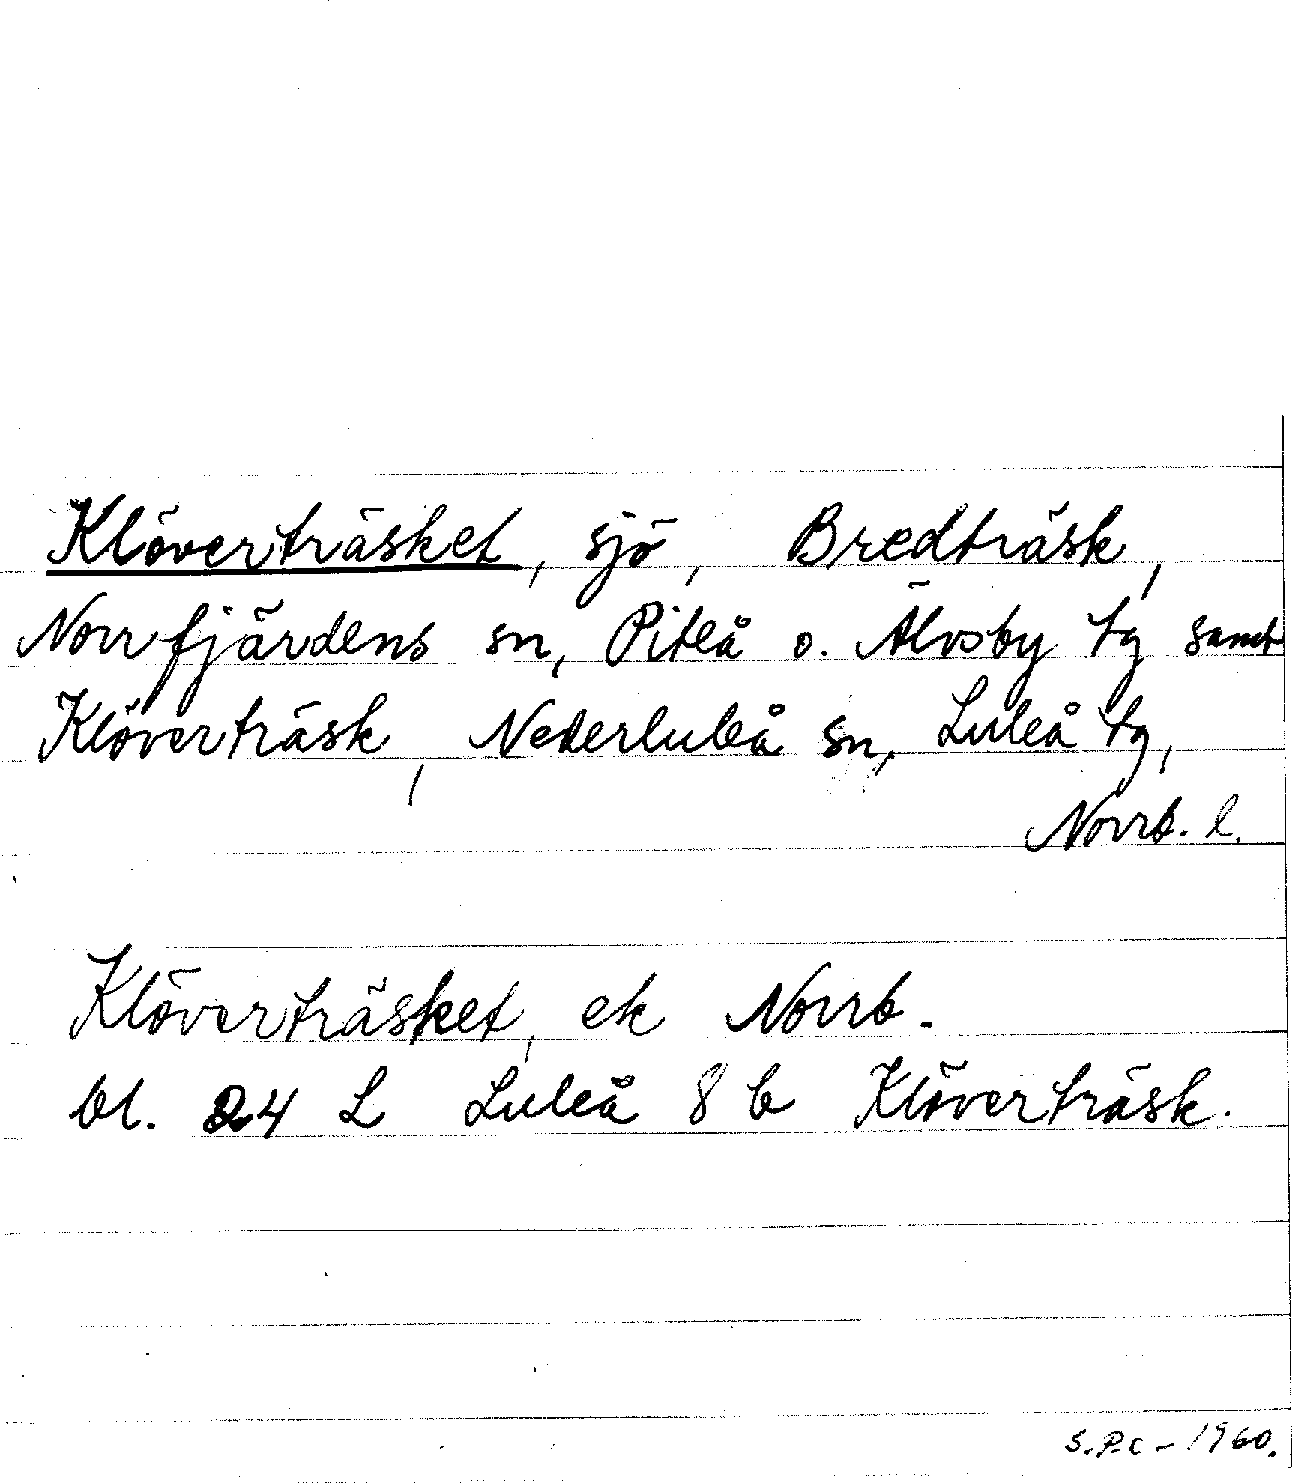 Klöverträsket, sjö, Bredträsk,
Norrfjärdens sn, Piteå o. Älvsby tg samt
Klöverträsk, Nederluleå sn, Luleå tg,
Norrb. l.
Klöverträsket, ek Norrb.
bl. 24 L Luleå 8 b Klöverträsk.
S.P.C - 1960.